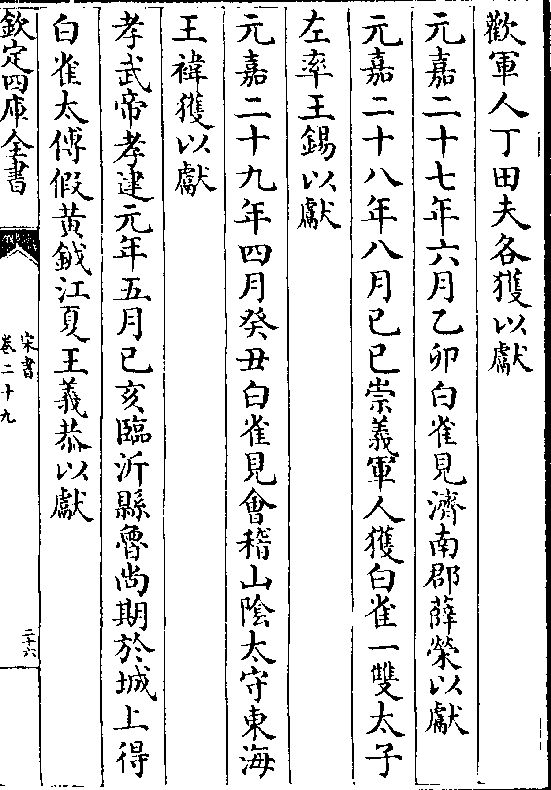 歡軍人丁田夫各獲以獻
元嘉二十七年六月乙卯白雀見濟南郡薛榮以獻
元嘉二十八年八月己巳崇義軍人獲白雀一雙太子
左率王錫以獻
元嘉二十九年四月癸丑白雀見會稽山隂太守東海
王禕獲以獻
孝武帝孝建元年五月己亥臨沂縣魯尚期於城上得
白雀太傅假黄鉞江夏王義恭以獻
欽定四庫全書
宋書
卷二十九
三十六